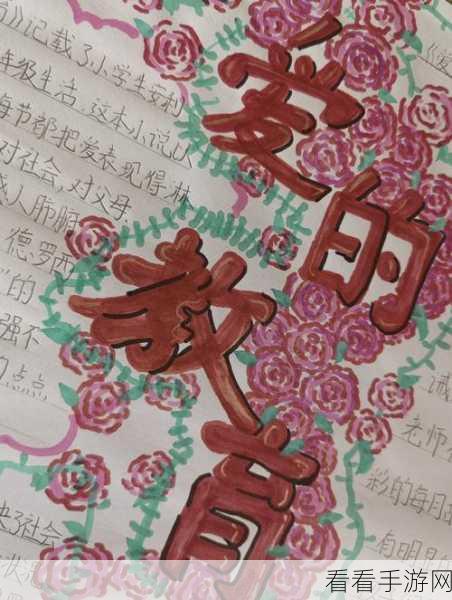 爱的
教育
》记载了小学生安利
年级生活，这本小说以
每节都把爱表现得淋
对社会，对父母
人肺腑
德罗西
的
强不
点点
社会
《爱
诚
老师
彩的每月
有明
看看手游网